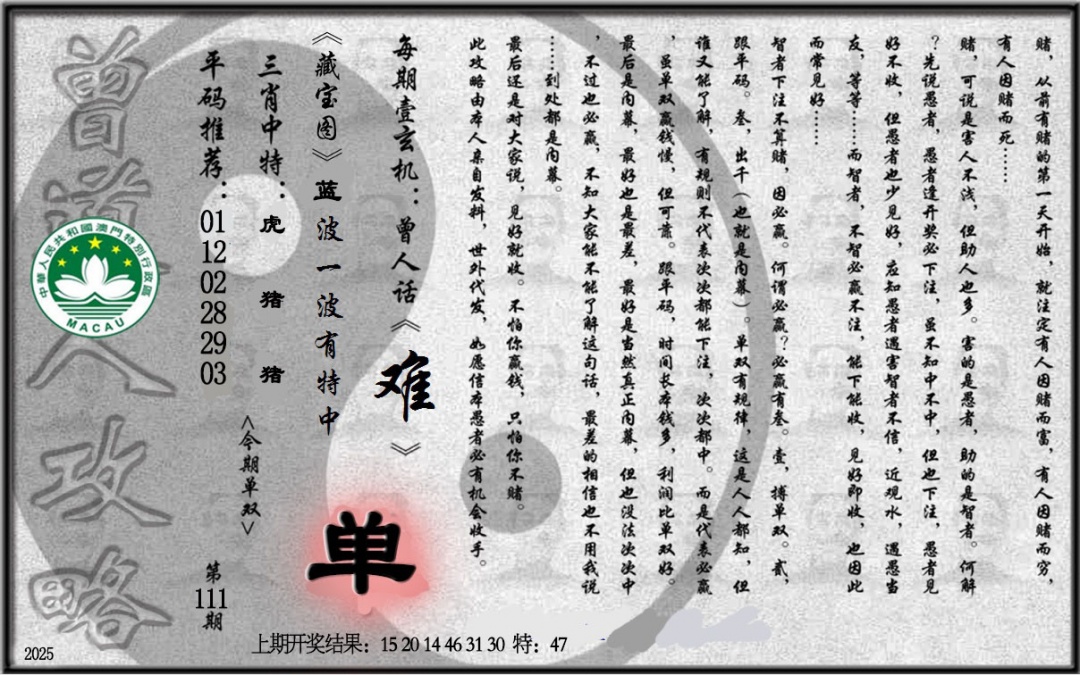 赌，从前有赌的第一天开始，就注定有人因赌而富，有人因赌而穷，
有人因赌而死……
赌，可说是害人不浅，但助人也多。害的是愚者，助的是智者。何解
？先说愚者，愚者逢开奖必下注，虽不知中不中，但也下注，愚者见
好不收，但愚者也少见好，应知愚者遇害智者不信，近观水，遇愚当
友，等等……而智者，不智必赢不注，能下能收，见好即收，也因此
而常见好……
智者下注不算赌，因必赢。何谓必赢？必赢有叁。壹，搏单双。贰，
跟平码。叁，出千（也就是内幕）。单双有规律，这是人人都知，但
谁又能了解，有规则不代表次次都能下注，次次都中。而是代表必赢
，虽单双赢钱慢，但可靠。跟平码，时间长本钱多，利润比单双好。
最后是内幕，最好也是最差，最好是当然真正内幕，但也没法次次中
，不过也必赢，不知大家能不能了解这句话，最差的相信也不用我说
……到处都是内幕。
最后还是对大家说，见好就收。不怕你赢钱，只怕你不赌。
此攻略由本人亲自发料，世外代发，如愿信本愚者必有机会收手。
每期壹玄机：曾人话《难》
《藏宝图》蓝波一波有特中
三肖中特：虎 猪 猪
平码推荐：01 12 02 28 29 03
<今期单双>
单
第111期
曾道人攻略
中華人民共和國澳門特別行政區
MACAU
上期开奖结果：15 20 14 46 31 30 特：47
2025